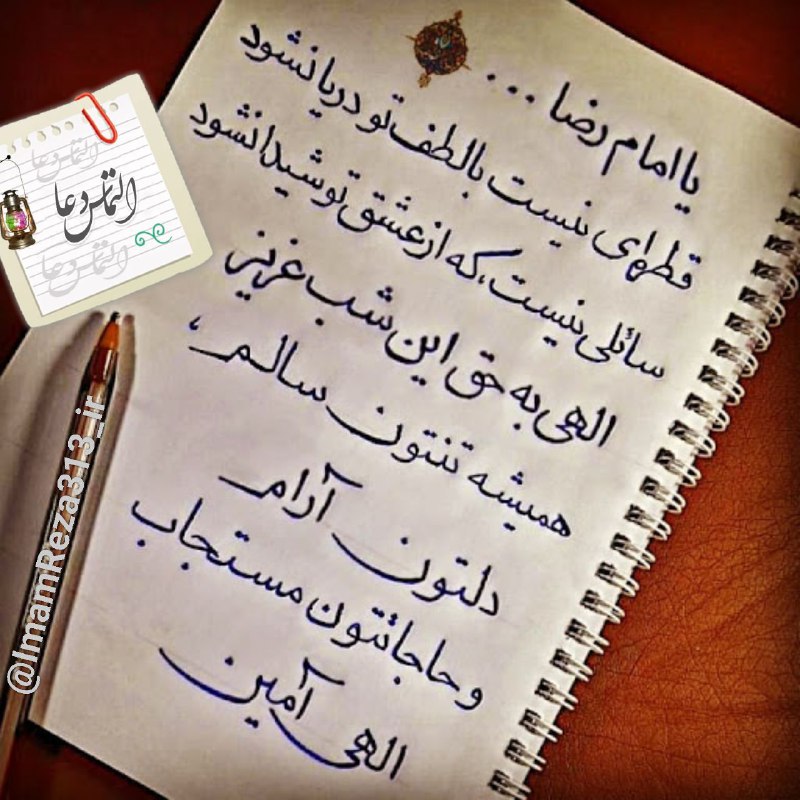 یا امام رضا ...
قطره‌ای نیست با لطف تو دریا نشود
سائلی نیست، که از عشق تو شیدا نشود
الهی به حق این شب عزیز
همیشه تنتون سالم،
دلتون آرام
و حاجاتتون مستجاب
الهی آمین
التماس دعا
التماس دعا
التماس دعا
@ImamReza313_ir